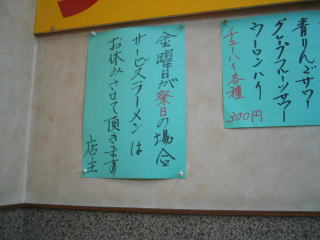 金曜日が祭日の場合
サービスラーメンは
お休みさせて頂きます
店主
青りんごサワー
グレープフルーツサワー
ウーロンハイ
チューハイ各種
300円